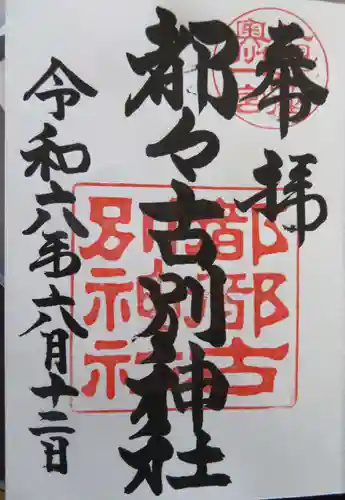 奉拝
都々古別神社
令和六年六月十二日
奥州一宮
都都古
別神社